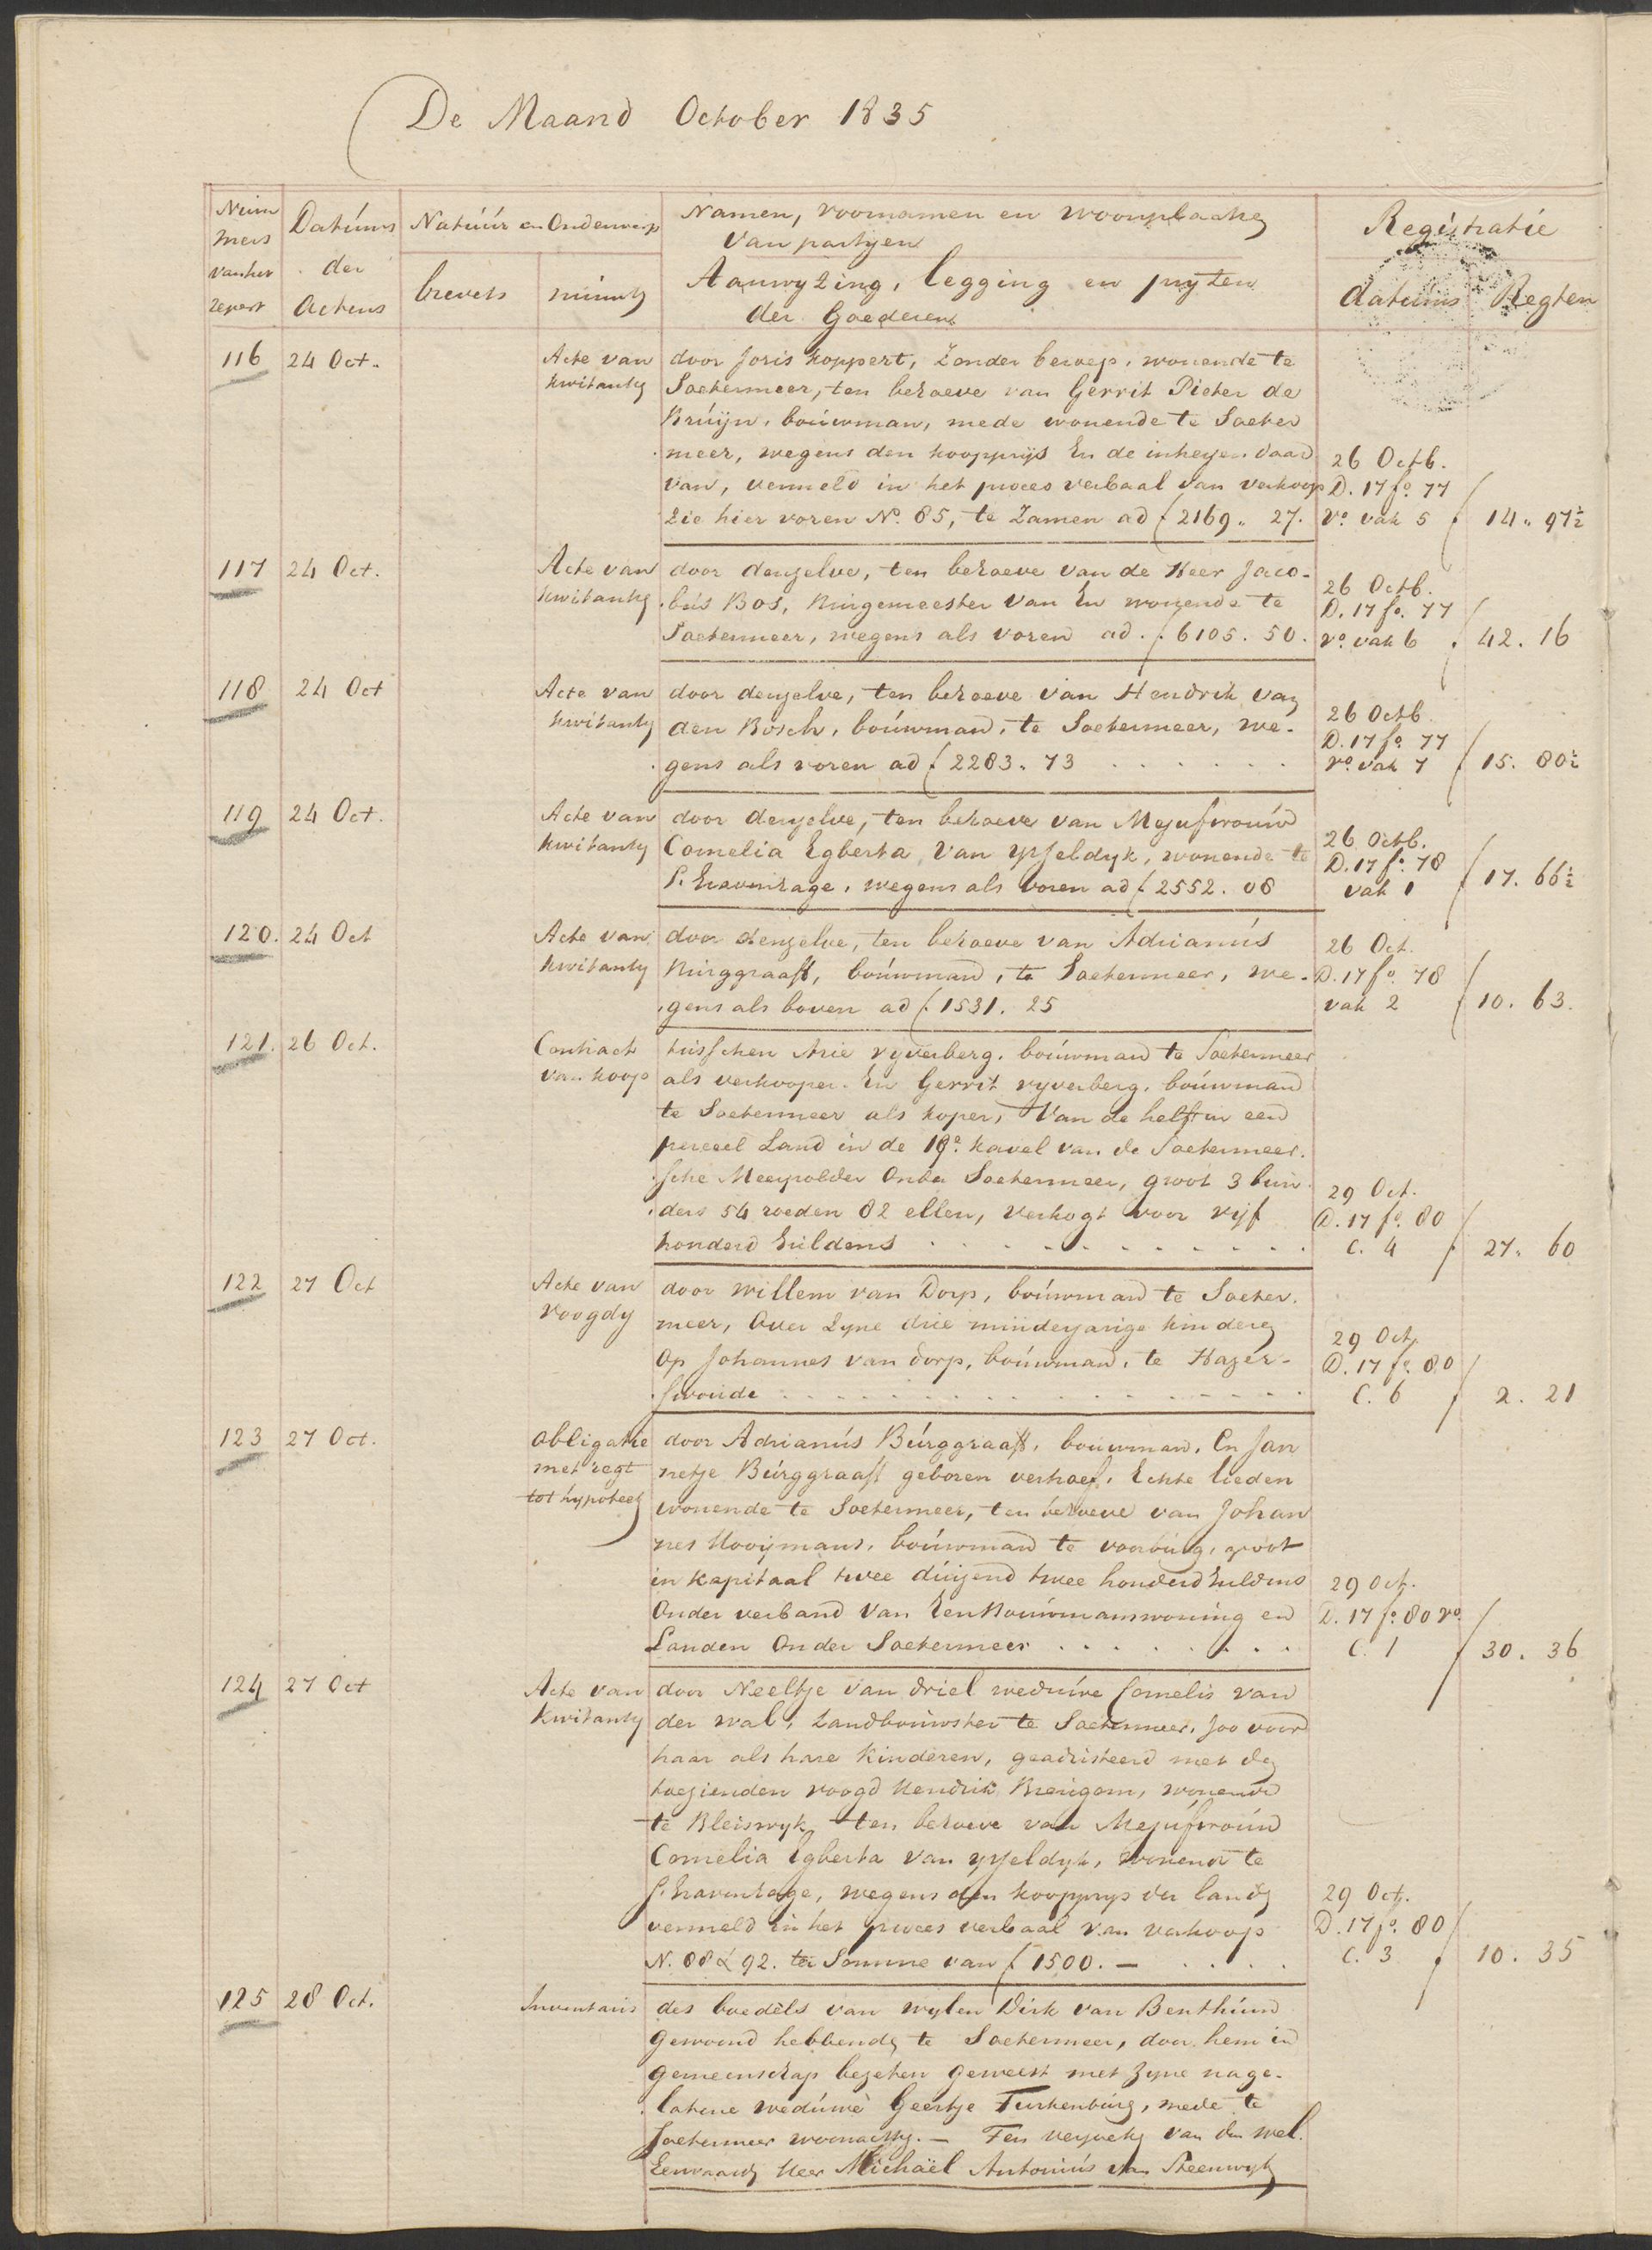 De Maand October 1835
Num
mers
van het
repert
Datúms
der
Actens
Natúúr en Onderwerp
brevets
minuts
Namen, voornamen en woonplaatse
van partyen
Aanwyzing, legging en pryzen
der Goederen
Registratie
datúms
Regten
116
24 Oct.
Acte van
kwitantie
door Joris Koppert, zonder beroep, wonende te
Soetermeer, ten behoeve van Gerrit Pieter de
Brúijn, boúwman, mede wonende te Soeter
meer, wegens den koopprijs En de interessen daar
van, vermeld in het proces verbaal van verkoop
Zie hier voren No. 85, te Zamen ad f 2169. 27.
26 Octb.
D. 17 fo. 77
vo. vak 5
14. 97½
117
24 Oct.
Acte van
kwitantie
door denzelve, ten behoeve van de Heer Jaco-
bús Bos, Búrgemeester van En wonende te
Soetermeer, wegens als voren ad. f 6105. 50.
26 Octb.
D. 17 fo. 77
vo. vak 6
42. 16
118
24 Oct
Acte van
kwitantie
door denzelve, ten behoeve van Hendrik van
den Bosch, boúwman, te Soetermeer, we-
gens als voren ad f 2283. 73
26 Octb
D. 17 fo. 77
vo. vak 7
15. 80½
119
24 Oct.
Acte van
kwitantie
door denzelve, ten behoeve van Mejufvroúw
Cornelia Egberta van Ysseldyk, wonende te
S. Gravenhage, wegens als voren ad f 2552. 08
26 Octb.
D. 17 fo. 78
vak 1
17. 66½
120.
24 Oct
Acte van
kwitantie
door denzelve, ten behoeve van Adrianús
Búrggraaff, boúwman, te Soetermeer, we-
gens als boven ad f 1531. 25
26 Oct.
D. 17 fo. 78
vak 2
10. 63.
121.
26 Oct.
Contract
van koop
tússchen Arie vyverberg, boúwman te Soetermeer
als verkooper. En Gerrit vyverberg, boúwman
te Soetermeer als koper, Van de helft in een
perceel Land in de 19e. kavel van de Soetermeer-
sche Meerpolder Onder Soetermeer, groot 3 bun
ders 54 roeden 82 ellen, verkogt voor vijf
honderd Guldens
29 Oct.
D. 17 fo. 80
C. 4
27. 60
122
27 Oct
Acte van
voogdy
door willem van Dorp, boúwman te Soeter.
meer, Over Zyne drie minderjarige kinderen
Op Johannes van Dorp, boúwman, te Hazer-
swoude
29 Oct
D. 17 fo. 80
C. 6
2. 21
123
27 Oct.
Obligatie
met regt
tot hypoteek
door Adrianús Búrggraaff, bouwman. En Jan
netje Búrggraaff geboren verhoef, Echte lieden
wonende te Soetermeer, ten behoeve van Johan
nes Mooijmans, boúwman te voorbúrg, groot
in kapitaal twee dúizend twee honderd Guldens
Onder verband van Een Boúwmanswoning en
Landen Onder Soetermeer
29 Oct.
D. 17 fo. 80 vo.
C. 1
30. 36
124
27 Oct
Acte van
kwitantie
door Neeltje van driel wedúwe Cornelis van
der wal, Landboúwster te Soetermeer, zoo voor
haar als hare kinderen, geadsisteerd met de
toezienden voogd Hendrik, wonende
te Bleiswyk, ten behoeve van Mejúfvroúw
Cornelia Egberta van Ysseldyk, wonend te
S. Gravenhage, wegens den koopprys der lande
vermeld in het proces verbaal van verkoop
N. 88 & 92. ter Somme van f 1500. —
29 Oct.
D. 17 fo. 80
C. 3
10. 35
125
28 Oct.
Inventaris
des boedels van wylen Dirk van Benthúm
gewoond hebbende te Soetermeer, door hem in
gemeenschap bezeten geweest met zyne nage-
latene wedúwe Geertje Turkenbúrg, mede te
Soetermeer woonachtig. — Ten verzoeke van den wel
Eerwaarde Heer Michaël Antoniús van Steenwyk